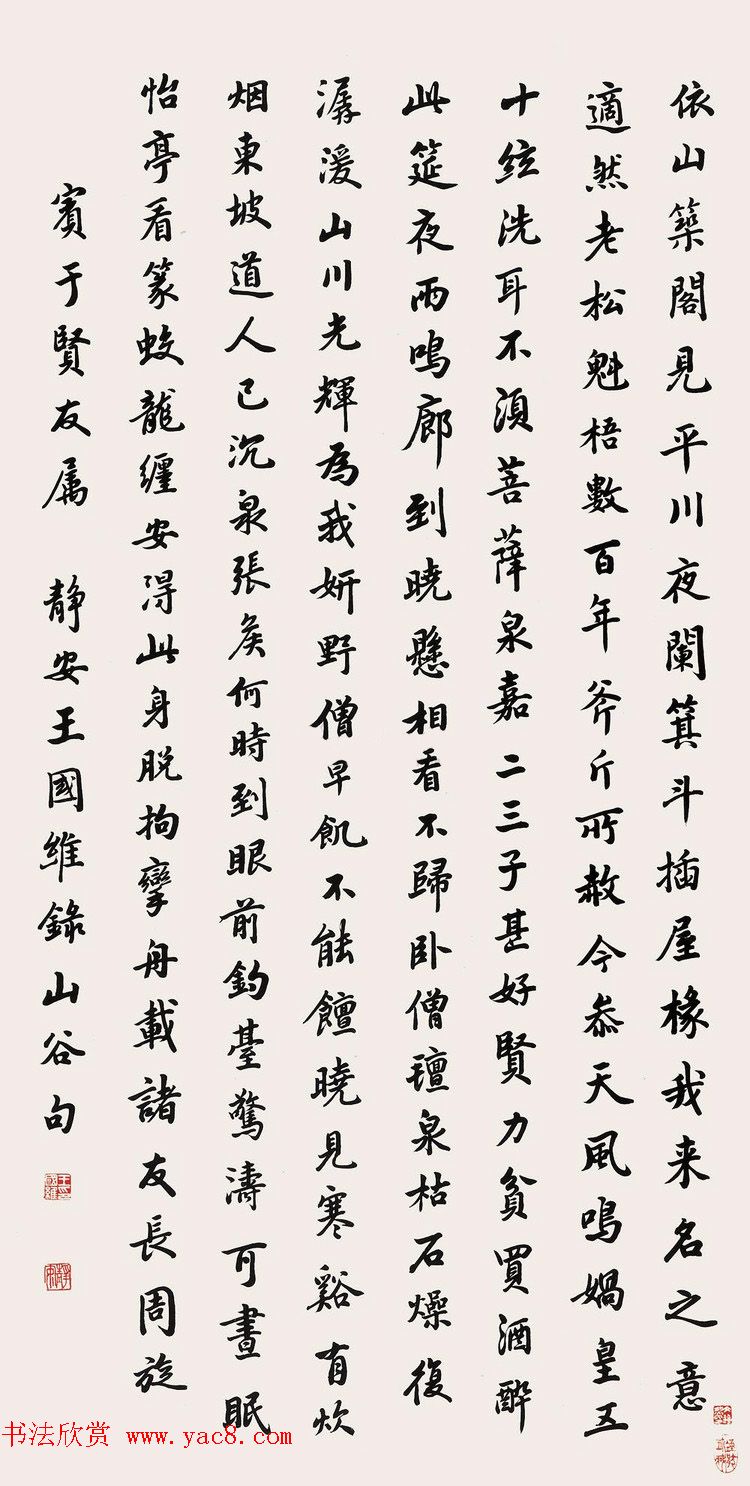 依山築閣見平川夜闌箕斗插屋椽我来名之意
適然老松魁梧數百年斧斤所赦今叅天風鳴媧皇五
十絃洗耳不須菩薩泉嘉二三子甚好賢力貧買酒醉
此筵夜雨鳴廊到曉懸相看不歸卧僧氊泉枯石燥復
潺湲山川光輝為我妍野僧早飢不能饘曉見寒谿有炊
烟東坡道人已沉泉張侯何時到眼前釣臺驚濤可晝眠
怡亭看篆蛟龍纏安得此身脱拘攣舟載諸友長周旋
賓于賢友属 静安王國維錄山谷句
书法欣赏 www.yac8.com